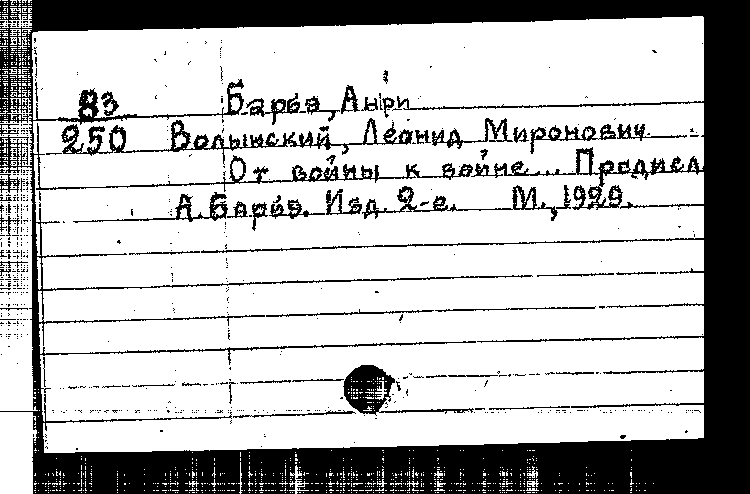 В3 Барбю, Анри
250 Волынский, Леонид Миронович
От войны к войне... Предисл.
А. Барбю. Изд. 2-е. М., 1929.